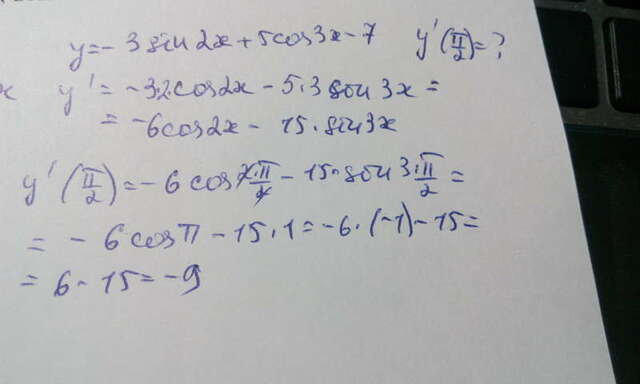 y=-3sin2x+5cos3x-7 y'(π/2)=?
x y'=-3·2cos2x-5·3sin3x=
=-6cos2x-15·sin3x
y'(π/2)=-6cos2·π/2-15·sin3·π/2=
=-6cosπ-15·1=-6·(-1)-15=
=6-15=-9